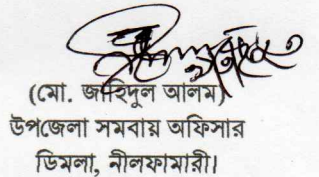 (মো. জাহিদুল আলম)
উপজেলা সমবায় অফিসার
ডিমলা, নীলফামারী।